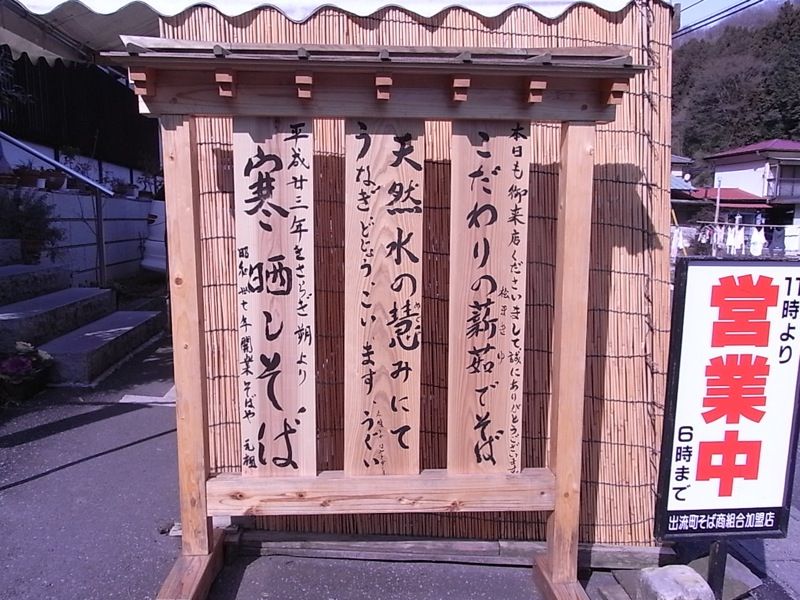 本日も御来店くださいまして誠にありがとうございます
こだわりの薪茹でそば
天然水の慧みにて
うなぎ どじょう、こい ます、うぐい
平成廿三年きさらぎ朔より
寒晒しそば
昭和廿七年開業そばや 元祖
11時より
営業中
6時まで
出流町そば商組合加盟店